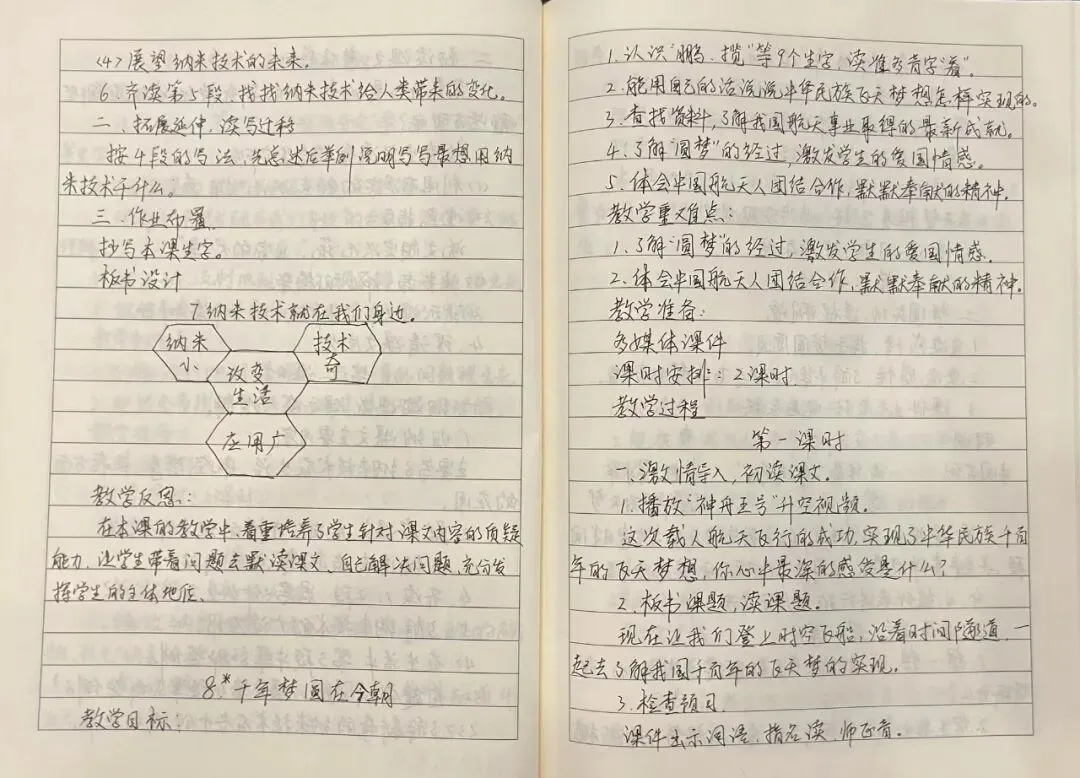 (4)展望纳米技术的未来。
6.齐读第5段,找找纳米技术给人类带来的变化。
二、拓展延伸,读写迁移
按4段的写法,先总述后举例说明写写最想用纳
米技术干什么。
三、作业布置
抄写本课生字。
板书设计
7.纳米技术就在我们身边。
纳米 技术
小 奇
改变
生活
应用广
教学反思:
在本课的教学中,着重培养了学生针对课文内容的质疑
能力,让学生带着问题去默读课文、自己解决问题,充分发
挥学生的主体地位、
8.*千年梦圆在今朝
教学目标:
1.认识“鹏、揽”等9个生字,读准多音字“着”。
2.能用自己的话说说中华民族飞天梦想怎样实现的。
3.查找资料,了解我国航天事业取得的最新成就。
4.了解“圆梦”的经过,激发学生的爱国情感。
5.体会中国航天人团结合作,默默奉献的精神。
教学重难点:
1.了解“圆梦”的经过,激发学生的爱国情感。
2.体会中国航天人团结合作,默默奉献的精神。
教学准备:
多媒体课件
课时安排:2课时
教学过程
第一课时
一、激情导入,初读课文.
1.播放“神舟五号”升空视频。
这次载人航天飞行的成功,实现了中华民族千百
年的飞天梦想,你心中最深的感受是什么?
2.板书课题,读课题。
现在让我们登上时空飞船,沿着时间隧道,一
起去了解我国千百年的飞天梦的实现。
3.检查预习
课件出示词语,指名读,师正音。